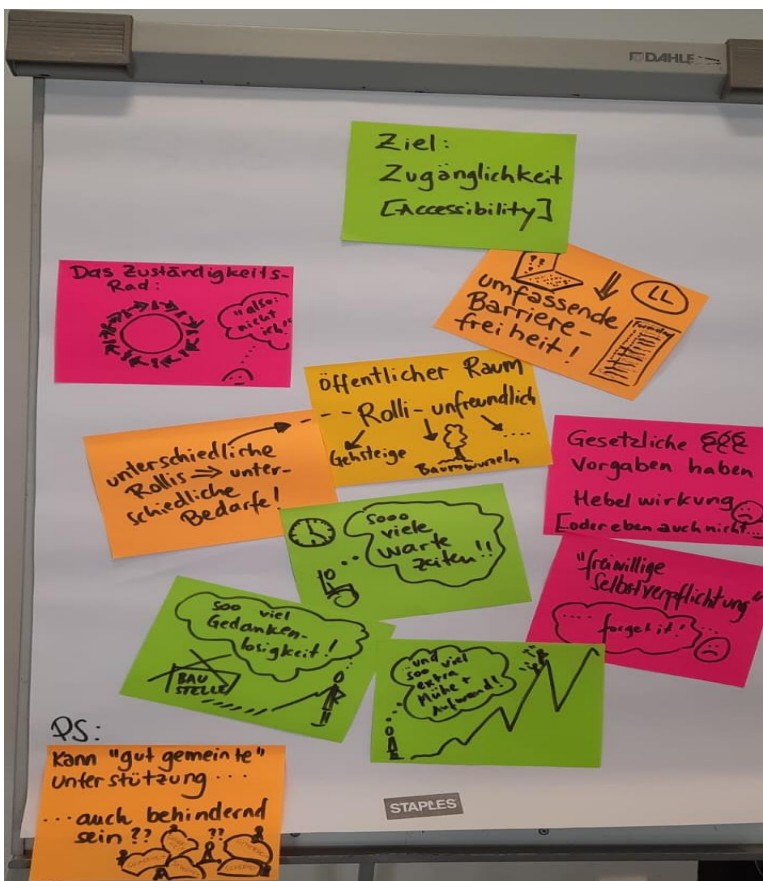 DAHLE
Ziel:
Zugänglichkeit
[Accessibility]
Das Zuständigkeits-
Rad:
"also:
nicht
ich!"
??
LL
umfassende
Barriere-
freiheit!
öffentlicher Raum
Rolli-unfreundlich
Gehsteige
Baumwurzeln
....
unterschiedliche
Rollis => unter-
schiedliche
Bedarfe!
Gesetzliche §§§
Vorgaben haben
Hebelwirkung
[oder eben auch nicht...
sooo
viele
Warte
zeiten!!
"freiwillige
Selbstverpflichtung"
forget it!
soo viel
Gedanken-
losigkeit!
BAU
STELLE
...und
soo viel
extra
Mühe +
Aufwand!
PS:
Kann "gut gemeinte"
Unterstützung ...
... auch behindernd
sein ??
??
STAPLES